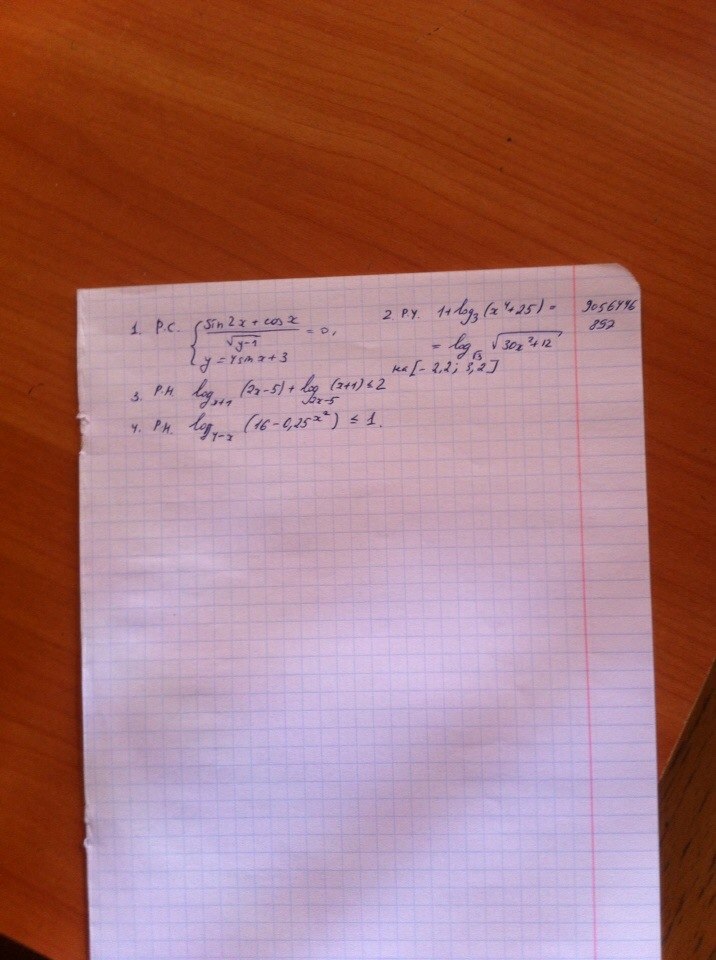 1. Р.С. { (sin2x + cosx)/√(y-1) = 0,
y = 4sinx + 3
2. Р.У. 1 + log₃(x⁴+25) =
= log_√3 √(30x²+12)
на [-2,2; 3,2]
9056446
892
3. Р.Н. log_{x+1} (2x-5) + log_{2x-5} (x+1) ≤ 2
4. Р.Н. log_{4-x} (16 - 0,25^{x²}) ≤ 1.